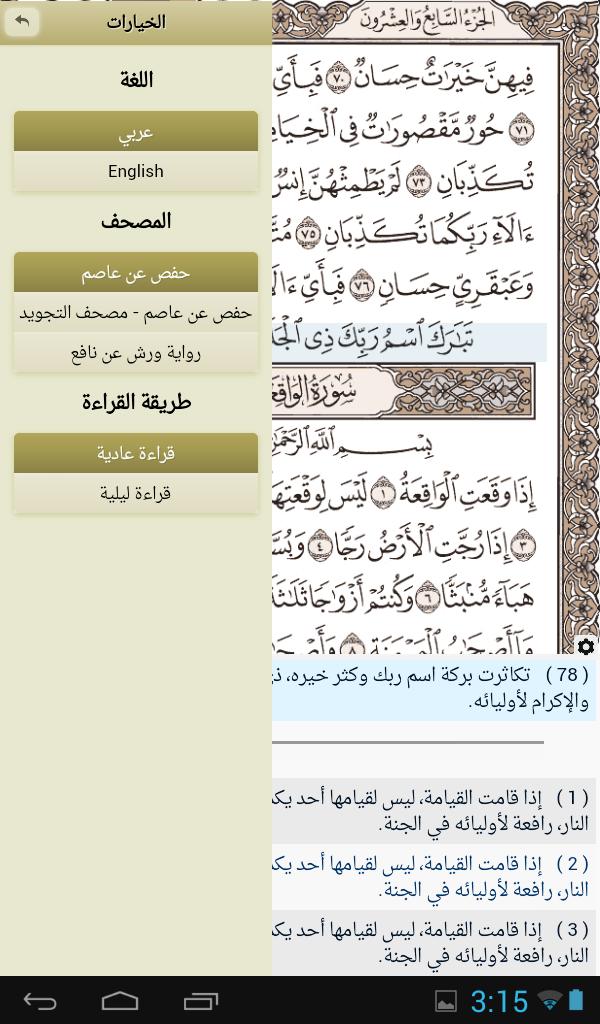 الخيارات
اللغة
عربي
English
المصحف
حفص عن عاصم
حفص عن عاصم - مصحف التجويد
رواية ورش عن نافع
طريقة القراءة
قراءة عادية
قراءة ليلية
الجزء السابع والعشرون
فِيهِنَّ خَيْرَٰتٌ حِسَانٌ ٧٠ فَبِأَيِّ
٧١ حُورٌ مَّقْصُورَٰتٌ فِي الْخِيَامِ
تُكَذِّبَانِ ٧٣ لَمْ يَطْمِثْهُنَّ إِنسٌ
ءَالَآءِ رَبِّكُمَا تُكَذِّبَانِ ٧٥
وَعَبْقَرِيٍّ حِسَانٍ ٧٦ فَبِأَيِّ
تَبَٰرَكَ ٱسْمُ رَبِّكَ ذِي
سُورَةُ
بِسْمِ ٱللَّهِ
إِذَا وَقَعَتِ ٱلْوَاقِعَةُ ١ لَيْسَ لِوَقْعَتِهَا
٣ إِذَا رُجَّتِ ٱلْأَرْضُ رَجًّا ٤
هَبَآءً مُّنۢبَثًّا ٦ وَكُنتُمْ أَزْوَٰجًا
( 78 ) تكاثرت بركة اسم ربك وكثر خيره،
والإكرام لأوليائه.
( 1 ) إذا قامت القيامة، ليس لقيامها أحد
النار، رافعة لأوليائه في الجنة.
( 2 ) إذا قامت القيامة، ليس لقيامها أحد
النار، رافعة لأوليائه في الجنة.
( 3 ) إذا قامت القيامة، ليس لقيامها أحد
النار، رافعة لأوليائه في الجنة.
3:15